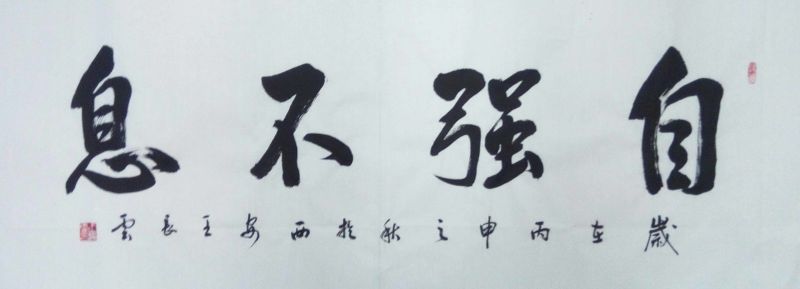 自强不息
歲在丙申之秋於西安王長雲